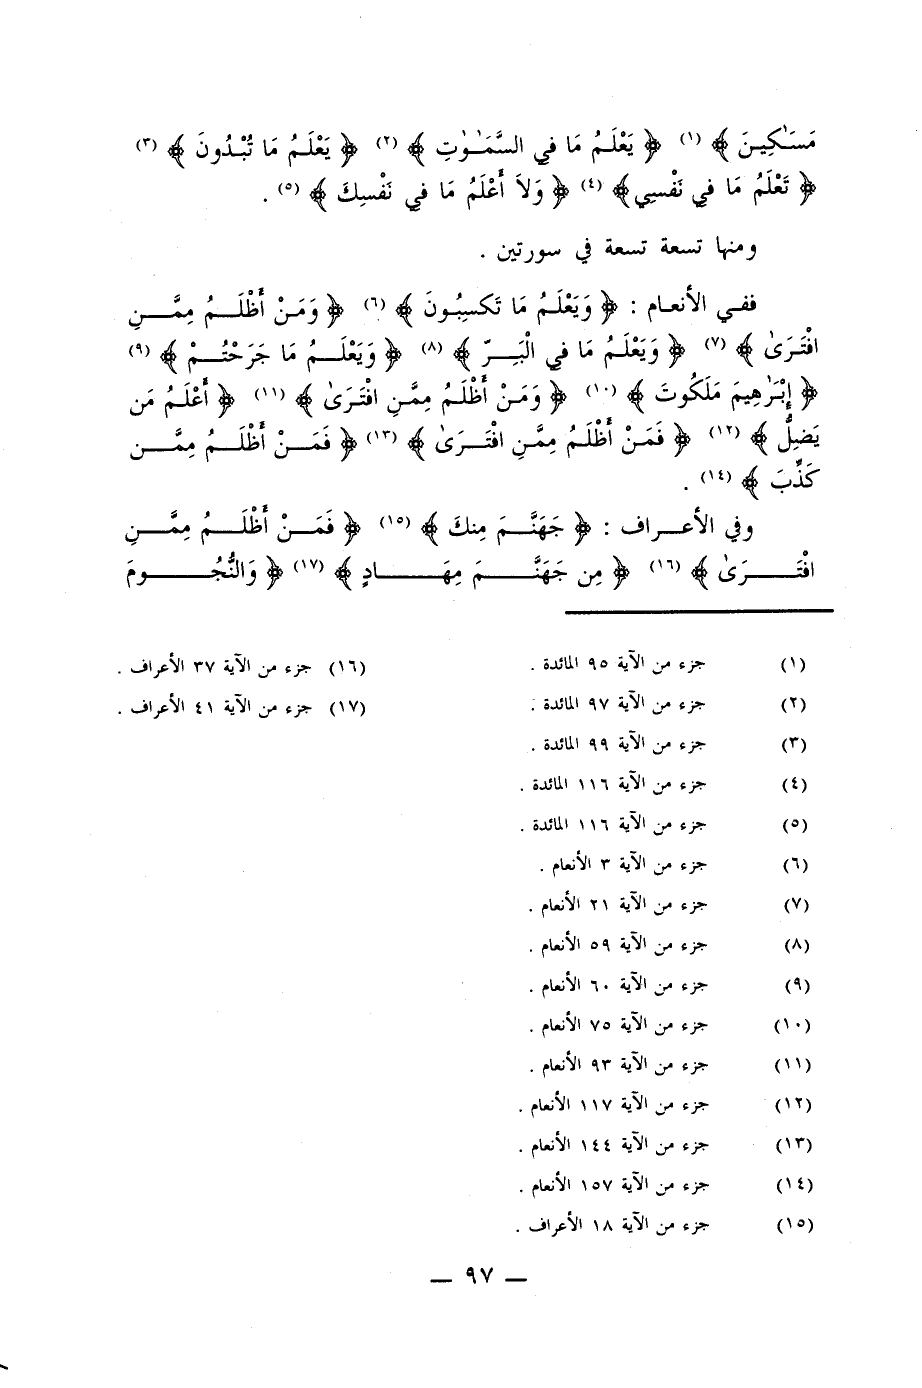 مَسَـٰكِينَ ﴾ (١) ﴿ يَعْلَمُ مَا في السَّمَـٰوٰتِ ﴾ (٢) ﴿ يَعْلَمُ مَا تُبْدُونَ ﴾ (٣)
﴿ تَعْلَمُ مَا في نَفْسِي ﴾ (٤) ﴿ وَلاَ أَعْلَمُ مَا في نَفْسِكَ ﴾ (٥) .
ومنها تسعة تسعة في سورتين .
ففي الأنعام : ﴿ وَيَعْلَمُ مَا تَكسِبُونَ ﴾ (٦) ﴿ وَمَنْ أَظْلَمُ مِمَّنِ
افْتَرَىٰ ﴾ (٧) ﴿ وَيَعْلَمُ مَا في الْبَرِّ ﴾ (٨) ﴿ وَيَعْلَمُ مَا جَرَحْتُمْ ﴾ (٩)
﴿ إِبْرَٰهِيمَ مَلَكُوتَ ﴾ (١٠) ﴿ وَمَنْ أَظْلَمُ مِمَّنِ افْتَرَىٰ ﴾ (١١) ﴿ أَعْلَمُ مَن
يَضِلُّ ﴾ (١٢) ﴿ فَمَنْ أَظْلَمُ مِمَّنِ افْتَرَىٰ ﴾ (١٣) ﴿ فَمَنْ أَظْلَمُ مِمَّن
كَذَّبَ ﴾ (١٤) .
وفي الأعراف : ﴿ جَهَنَّمَ مِنكَ ﴾ (١٥) ﴿ فَمَنْ أَظْلَمُ مِمَّنِ
افْتَرَىٰ ﴾ (١٦) ﴿ مِن جَهَنَّمَ مِهَادٍ ﴾ (١٧) ﴿ وَالنُّجُومَ
(١) جزء من الآية ٩٥ المائدة .
(٢) جزء من الآية ٩٧ المائدة .
(٣) جزء من الآية ٩٩ المائدة .
(٤) جزء من الآية ١١٦ المائدة .
(٥) جزء من الآية ١١٦ المائدة .
(٦) جزء من الآية ٣ الأنعام .
(٧) جزء من الآية ٢١ الأنعام .
(٨) جزء من الآية ٥٩ الأنعام .
(٩) جزء من الآية ٦٠ الأنعام .
(١٠) جزء من الآية ٧٥ الأنعام .
(١١) جزء من الآية ٩٣ الأنعام .
(١٢) جزء من الآية ١١٧ الأنعام .
(١٣) جزء من الآية ١٤٤ الأنعام .
(١٤) جزء من الآية ١٥٧ الأنعام .
(١٥) جزء من الآية ١٨ الأعراف .
(١٦) جزء من الآية ٣٧ الأعراف .
(١٧) جزء من الآية ٤١ الأعراف .
— ٩٧ —